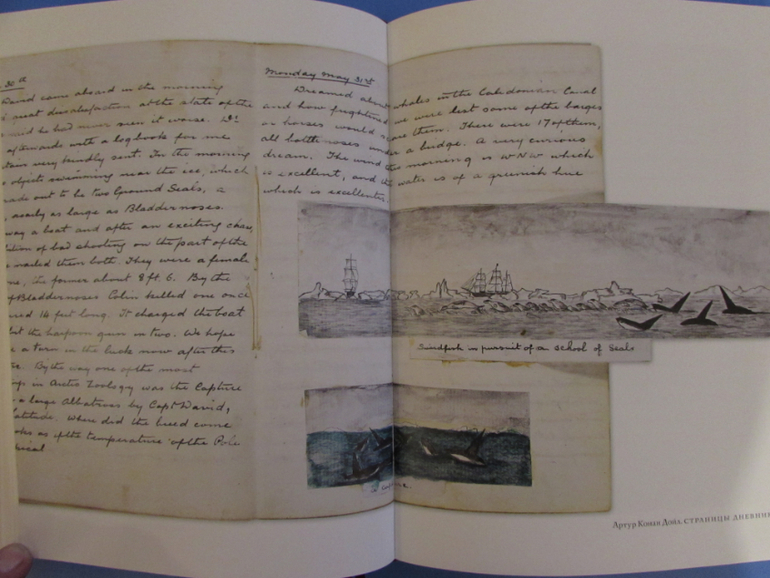 David came aboard in the morning
great dissatisfaction at the state of the
said he had never seen it worse. Dr
afterwards with a logbook for me
very kindly sent. In the morning
objects swimming near the ice, which
made out to be two Ground Seals, a
nearly as large as Bladdernoses.
away a boat and after an exciting chase,
of bad shooting on the part of the
nailed them both. They were a female
the former about 8 ft. 6. By the
Bladdernoses Colin killed one once
14 feet long. It charged the boat
the harpoon gun in two. We hope
a turn in the luck now after this
By the way one of the most
in Arctic Zoology was the Capture
a large Albatross by Capt David,
latitude. Where did the breed come
as of the temperature of the Pole
Monday May 31st
Dreamed about whales in the Caledonian Canal
and how frightened we were lest some of the barges
or horses would scare them. There were 17 of them,
all bottlenoses under a bridge. A very curious
dream. The wind this morning is W N W which
is excellent, and the water is of a greenish hue
which is excellenter.
Swordfish in pursuit of a school of Seals
Артур Конан Дойл. СТРАНИЦЫ ДНЕВНИК